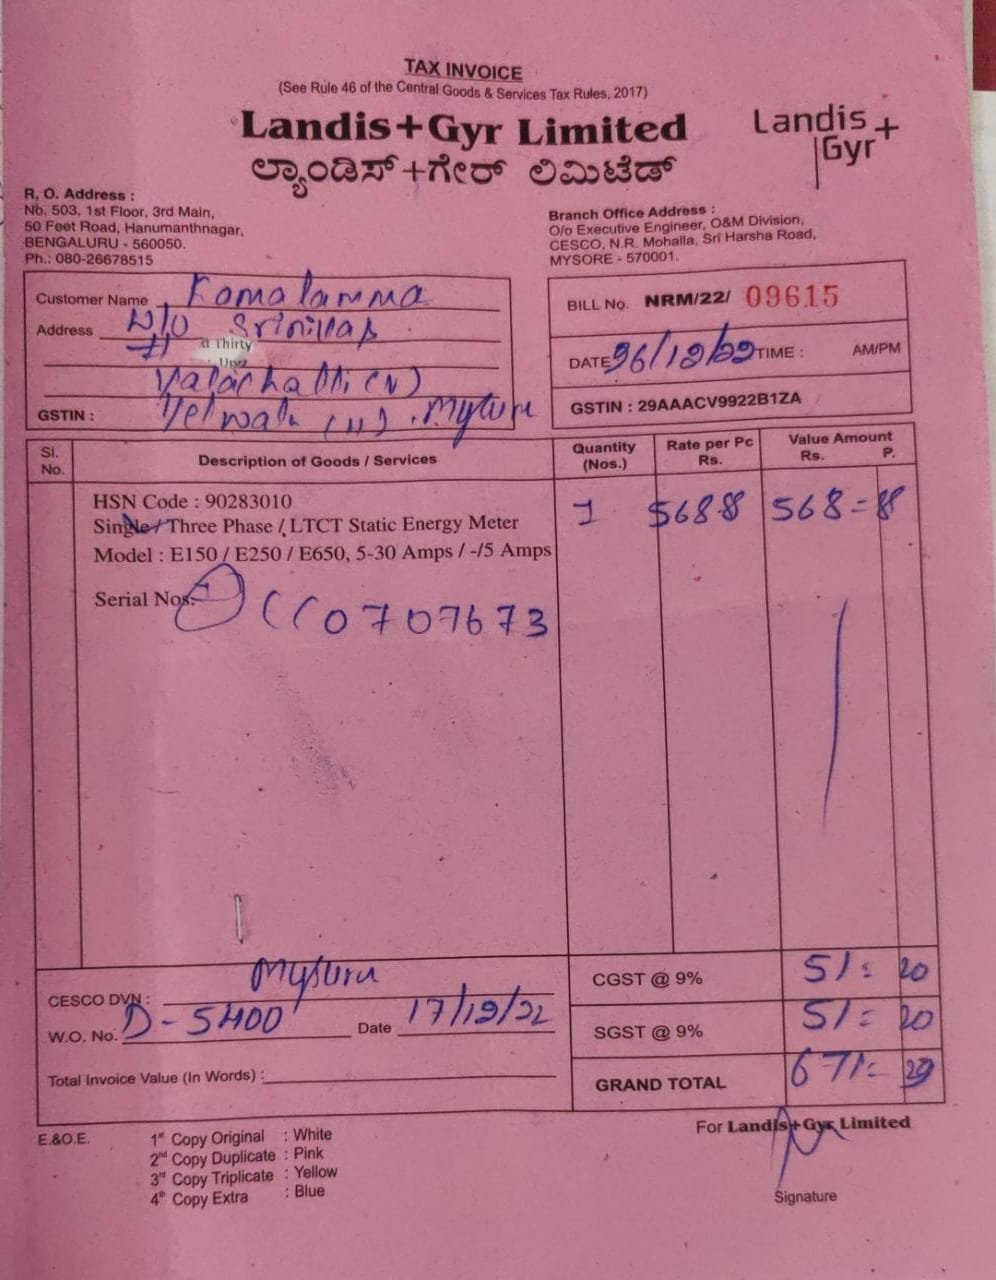 TAX INVOICE
(See Rule 46 of the Central Goods & Services Tax Rules, 2017)
Landis+Gyr Limited
ಲ್ಯಾಂಡಿಸ್+ಗೇರ್ ಲಿಮಿಟೆಡ್
Landis
Gyr+
R, O. Address :
No. 503, 1st Floor, 3rd Main,
50 Feet Road, Hanumanthnagar,
BENGALURU - 560050.
Ph.: 080-26678515
Branch Office Address :
O/o Executive Engineer, O&M Division,
CESCO, N.R. Mohalla, Sri Harsha Road,
MYSORE - 570001.
Customer Name Komalamma
Address W/O
a Thirty
GSTIN :
BILL No. NRM/22/ 09615
DATE TIME : AM/PM
GSTIN : 29AAACV9922B1ZA
Sl. No. Description of Goods / Services Quantity (Nos.) Rate per Pc Rs. Value Amount Rs. P.
HSN Code : 90283010
Single / Three Phase / LTCT Static Energy Meter 1 568-8 568=8
Model : E150 / E250 / E650, 5-30 Amps / -/5 Amps
Serial Nos. 0707673
CESCO DVN : Mysuru
W.O. No. D-5400 Date
Total Invoice Value (In Words) :
CGST @ 9% 51= 20
SGST @ 9% 51= 20
GRAND TOTAL 671=
E.&O.E.
1st Copy Original : White
2nd Copy Duplicate : Pink
3rd Copy Triplicate : Yellow
4th Copy Extra : Blue
For Landis+Gyr Limited
Signature